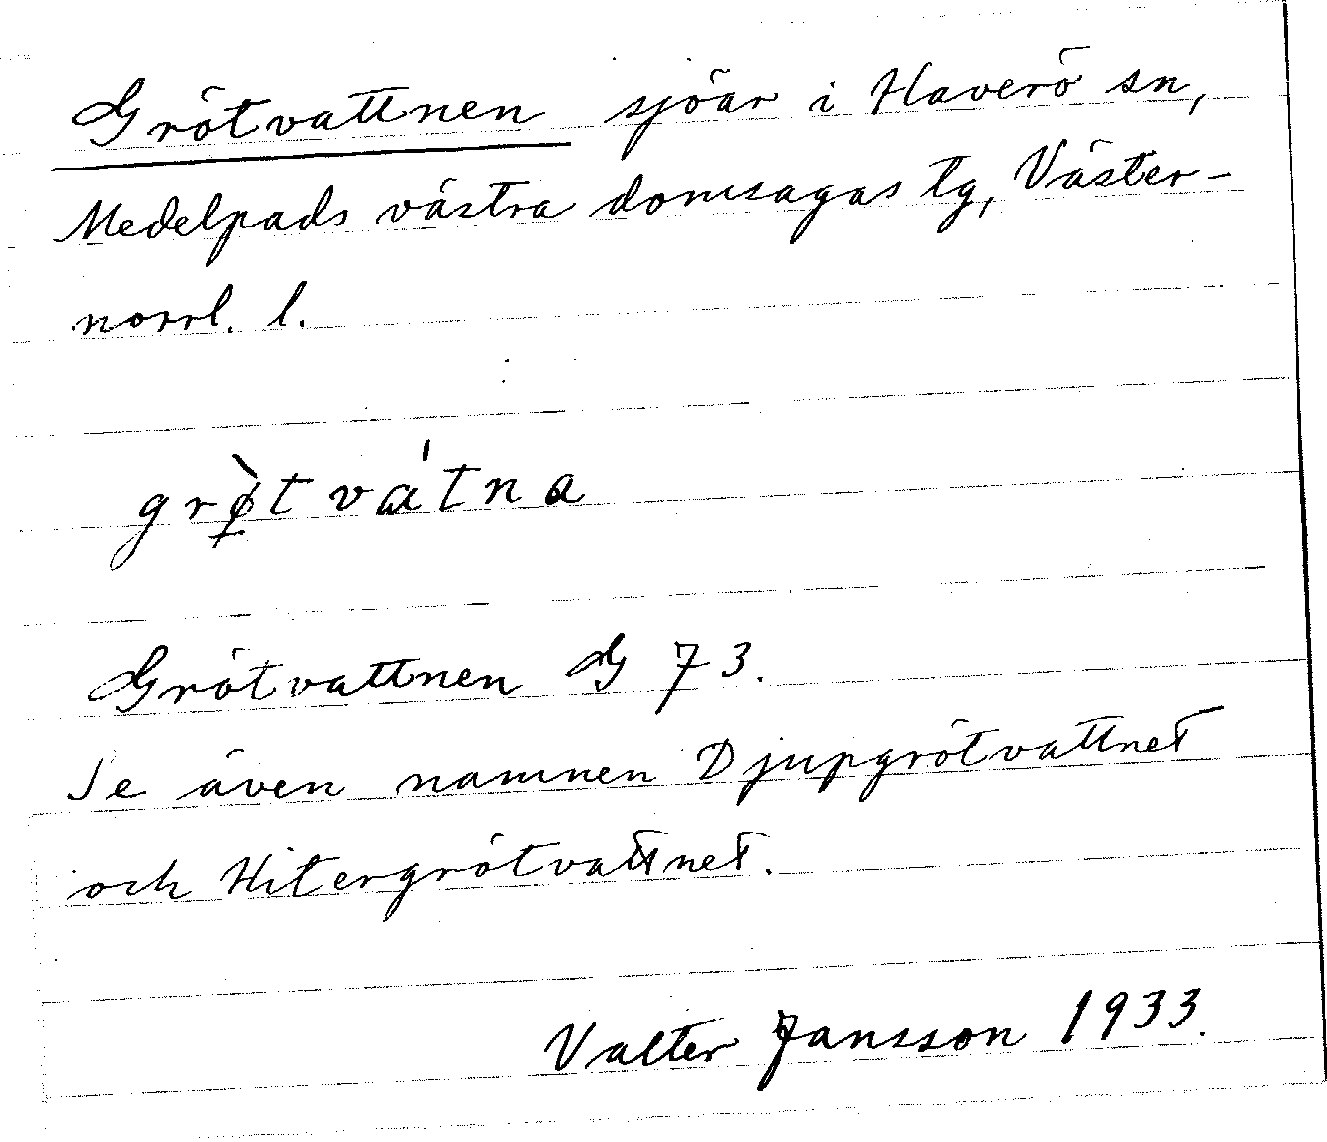 Grötvattnen sjöar i Haverö sn,
Medelpads västra domsagas tg, Väster-
norrl. l.
grø̀tvátna
Grötvattnen G 73.
Se även namnen Djupgrötvattnet
och Hitergrötvattnet.
Valter Jansson 1933.